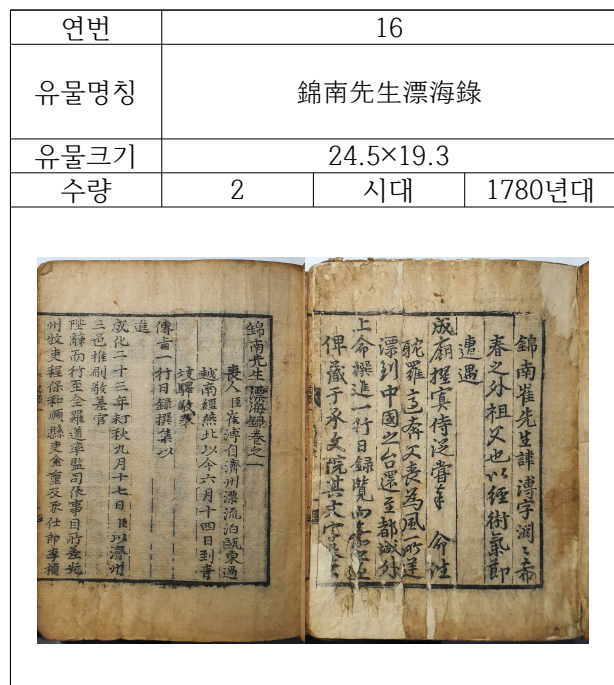 연번 16
유물명칭 錦南先生漂海錄
유물크기 24.5×19.3
수량 2 시대 1780년대
錦南崔先生諱溥字淵〻希
春之外祖父也以經術氣節
遭遇
成廟擢寘侍從嘗奉 命往
耽羅奔父喪為風所逆
漂到中國之台還至都城外
上命撰進一行日錄覽而嘉之
俾藏于承文院其文字
錦南先生漂海錄卷之一
喪人臣崔溥自濟州漂流泊甌東過
越南經燕北以今六月十四日到青
坡驛敬奉
傳旨一行日錄撰集以
進
成化二十三年丁未秋九月十七日臣以濟州
三邑推刷敬差官
陛辭而行至全羅道率監司依事目所差光
州牧吏程保和順縣吏金重及承仕郎李楨